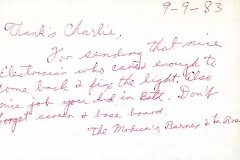 9-9-83
Thank's Charlie,
For sending that nice
Electrician who cares enough to
come back & fix the light. Also
nice job you did in Bath. Don't
forget screen & base board.
The Modica's, Barnes & La Rosa